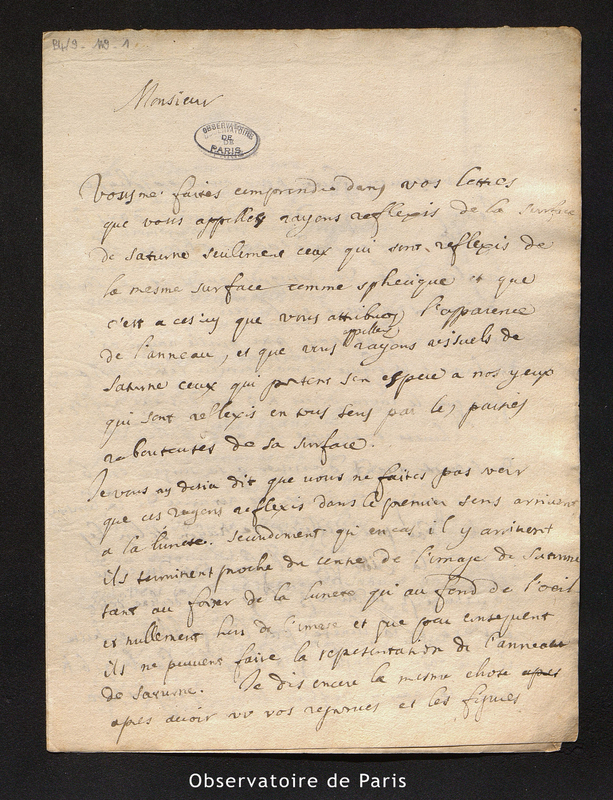 B4/9 - 119 - 1
Monsieur
OBSERVATOIRE
DE
PARIS
Vous me faites comprendre dans vos lettres
que vous appellez rayons reflexis de la surface
de saturne seulement ceux qui sont reflexis de
la mesme surface comme spherique et que
c'est a ces icy que vous attribuez l'apparence
de l'anneau, et que vous appellez rayons visuels de
saturne ceux qui portent son espece a nos yeux
qui sont reflexis en tous sens par les parties
raboteuses de sa surface.
Je vous ay desia dit que vous ne faites pas voir
que ces rayons reflexis dans le premier sens arrivent
a la lunete. secondement qu'en cas il y arrivent
ils terminent proche du centre de l'image de Saturne
tant au foier de la lunete qu'au fond de l'oeil
et nullement hors de l'image et que par consequent
ils ne peuvent faire la representation de l'anneau
de saturne. Je dis encore la mesme chose apres
apres avoir vu vos reponses et les figures
Observatoire de Paris